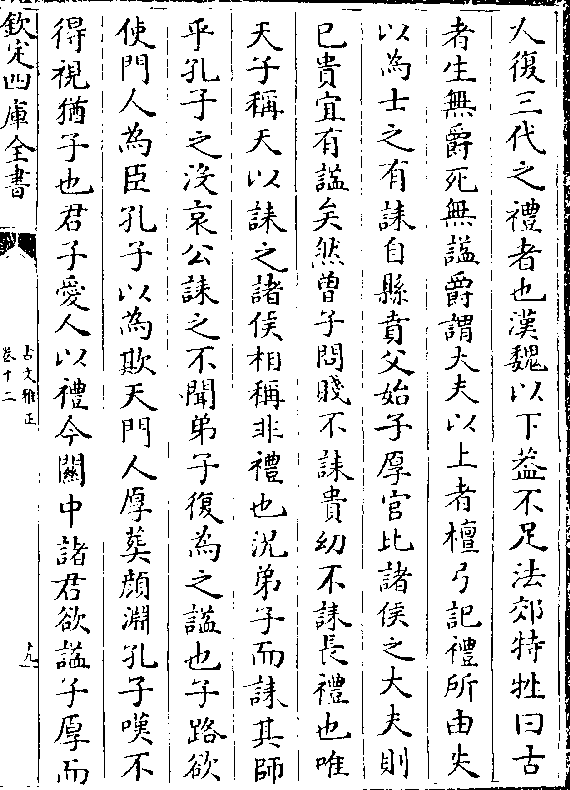 人復三代之禮者也漢魏以下葢不足法郊特牲曰古
者生無爵死無諡爵謂大夫以上者檀弓記禮所由失
以為士之有誄自縣賁父始子厚官比諸侯之大夫則
已貴宜有諡矣然曾子問賤不誄貴幼不誄長禮也唯
天子稱天以誄之諸侯相稱非禮也況弟子而誄其師
乎孔子之沒哀公誄之不聞弟子復為之諡也子路欲
使門人為臣孔子以為欺天門人厚葬顔淵孔子嘆不
得視猶子也君子愛人以禮今關中諸君欲諡子厚而
欽定四庫全書
古文雅正
卷十二
十九